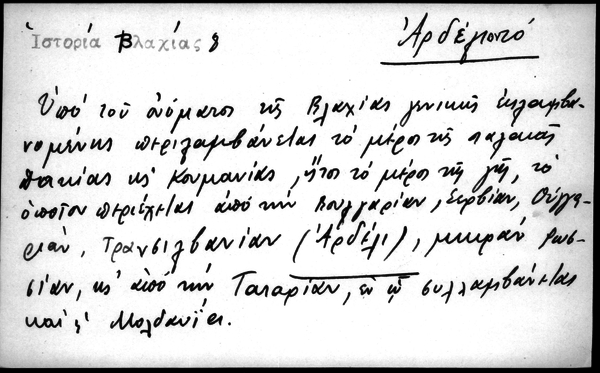 Ἱστορία Βλαχίας 8
Ἀρδέλιον
Ὑπό τοῦ ὀνόματος τῆς Βλαχίας γενικῶς ἐκλαμβα-
νομένης περιλαμβάνεται τό μέρος τῆς παλαιᾶς
Δακίας κ' Κουμανίας, ἤτοι τό μέρος τῆς γῆς, τό
ὁποῖον περιέχεται ἀπό τήν Βουλγαρίαν, Σερβίαν, Οὑγγα-
ρίαν, Τρανσιλβανίαν (Ἀρδέλι), μικράν Ῥωσ-
σίαν, κ' ἀπό τήν Ταταρίαν, ἐν ᾧ συλλαμβάνεται
καί ἡ Μολδαυία.